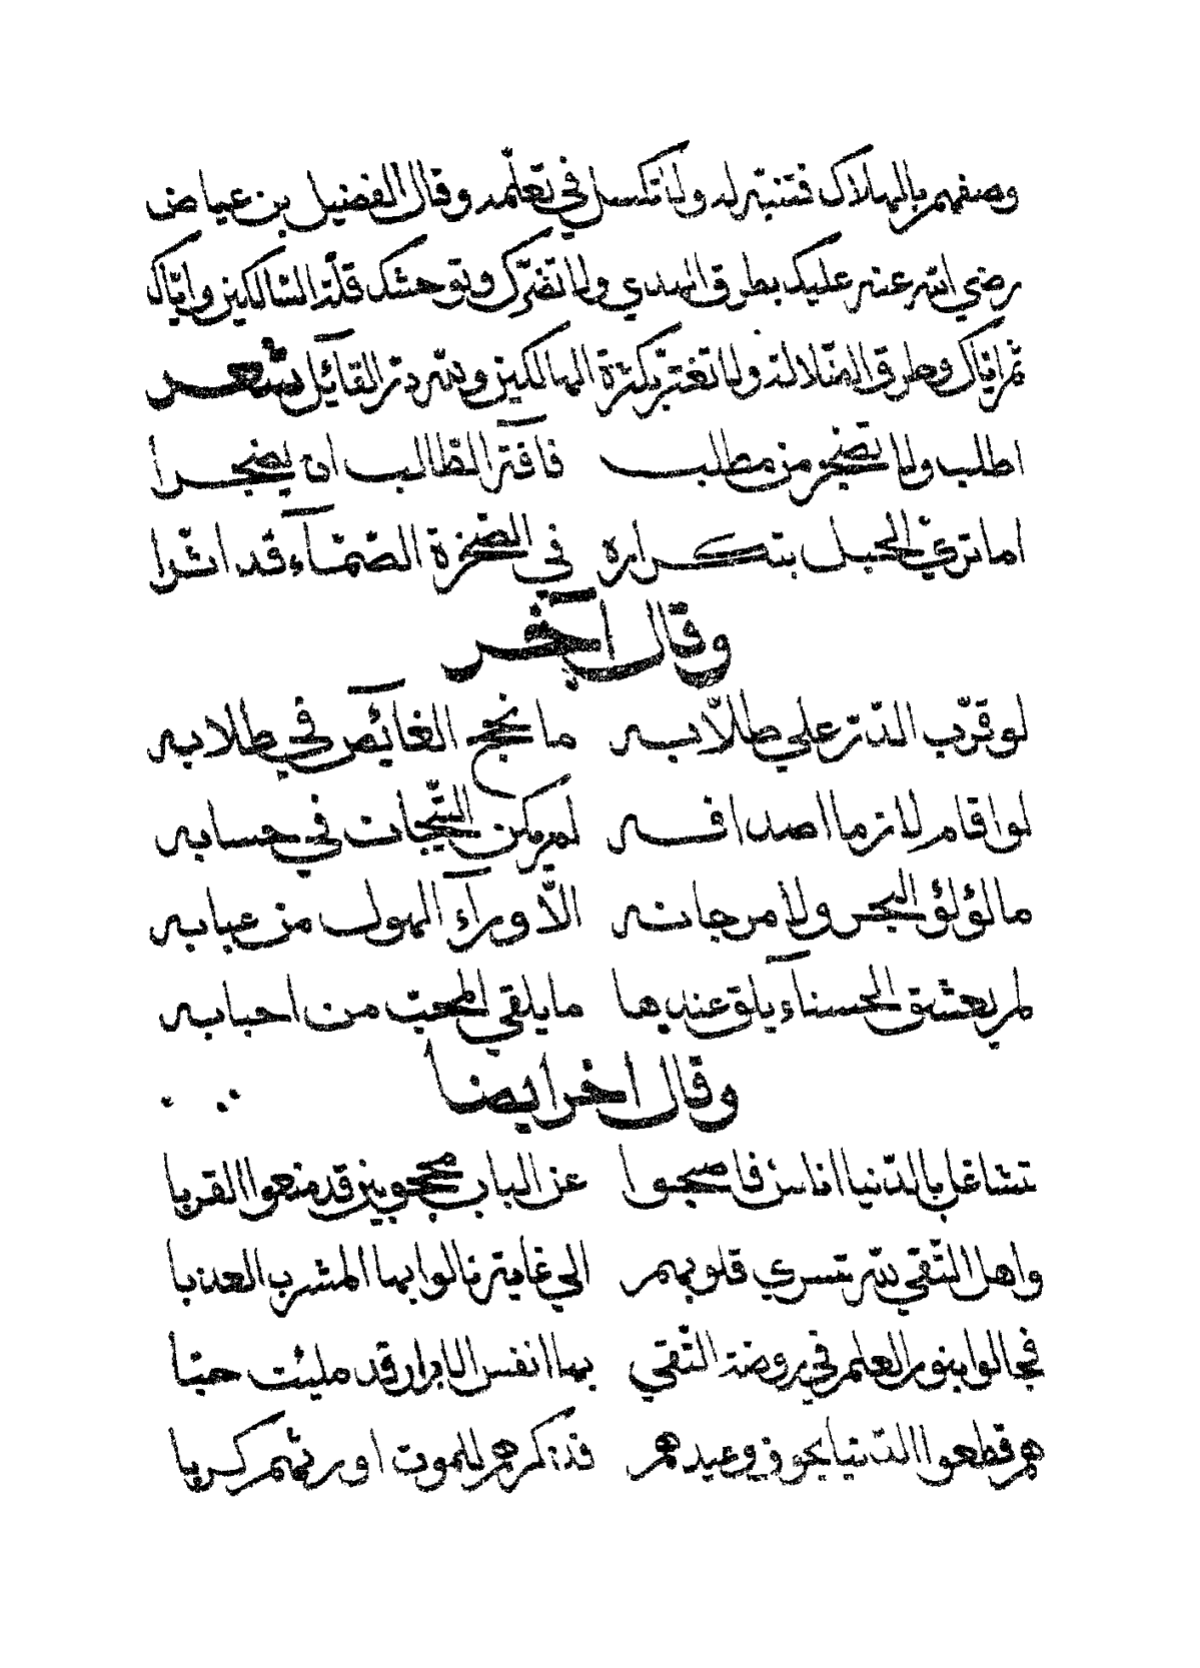 وصفهم بالهلاك فتنبّه له ولا تكسل في تعلّمه وقال الفضيل بن عياض
رضي الله عنه عليك بطرق الهدي ولا تضرّك وتوحشك قلّة السّالكين وايّاك
ثم ايّاك وطرق الضّلالة ولا تغترّ بكثرة الهالكين ولله درّ القآئل شعر
اطلب ولا تضجر من مطلب فآفة الطّالب ان يضجرا
اما تري الحبل بتكراره في الصّخرة الصّمّآء قد اثّرا
وقال آخر
لو قرّب الدّرّ علي طلّابه ما نجح الغآئص في طلابه
لو اقام لازما اصدافه لم يكن التّيجان في حسابه
ما لؤلؤ البحر ولا مرجانه الّا ورآء الهول من عبابه
لم يعشق الحسنآء يلق عندها ما يلقي المحبّ من احبابه
وقال اخر ايضا
تشاغل بالدّنيا اناس فاصبحوا عن الباب محجوبين قد منعوا القربا
واهل التّقي لله تسري قلوبهم الي غاية نالوا بها المشرب العذبا
فجالوا بنور العلم في روضة التّقي بها انفس الابرار قد مليئت حبّا
هم قطعوا الدّنيا بخوف وعيدهم فذكرهم للموت اورثهم كربا